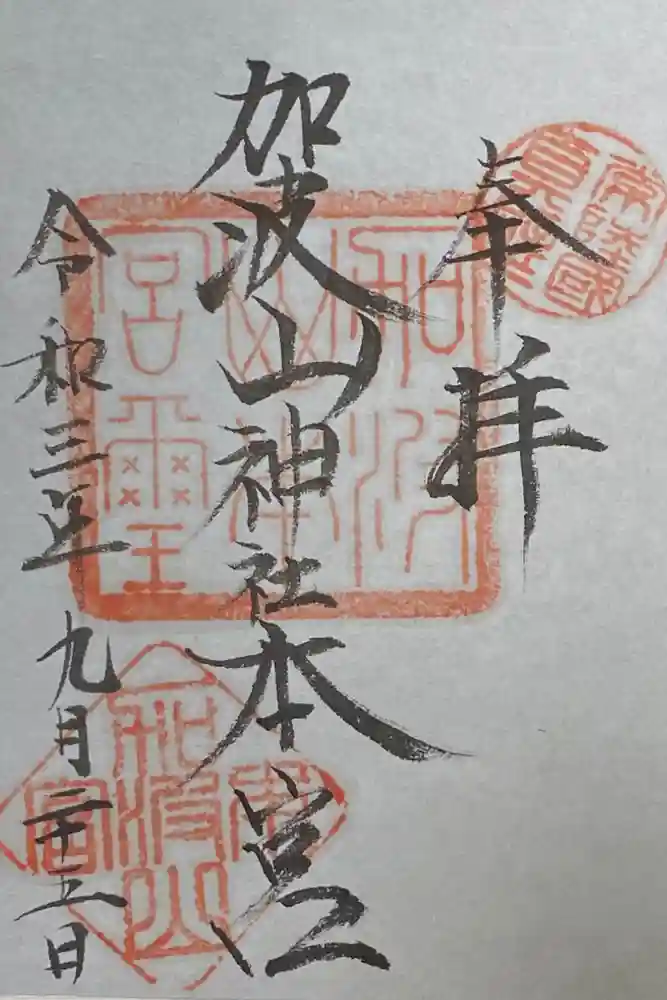 常陸國
真壁
奉拝
加波
山本
宮璽
加波山神社本宮
加波山
令和三年九月二十五日